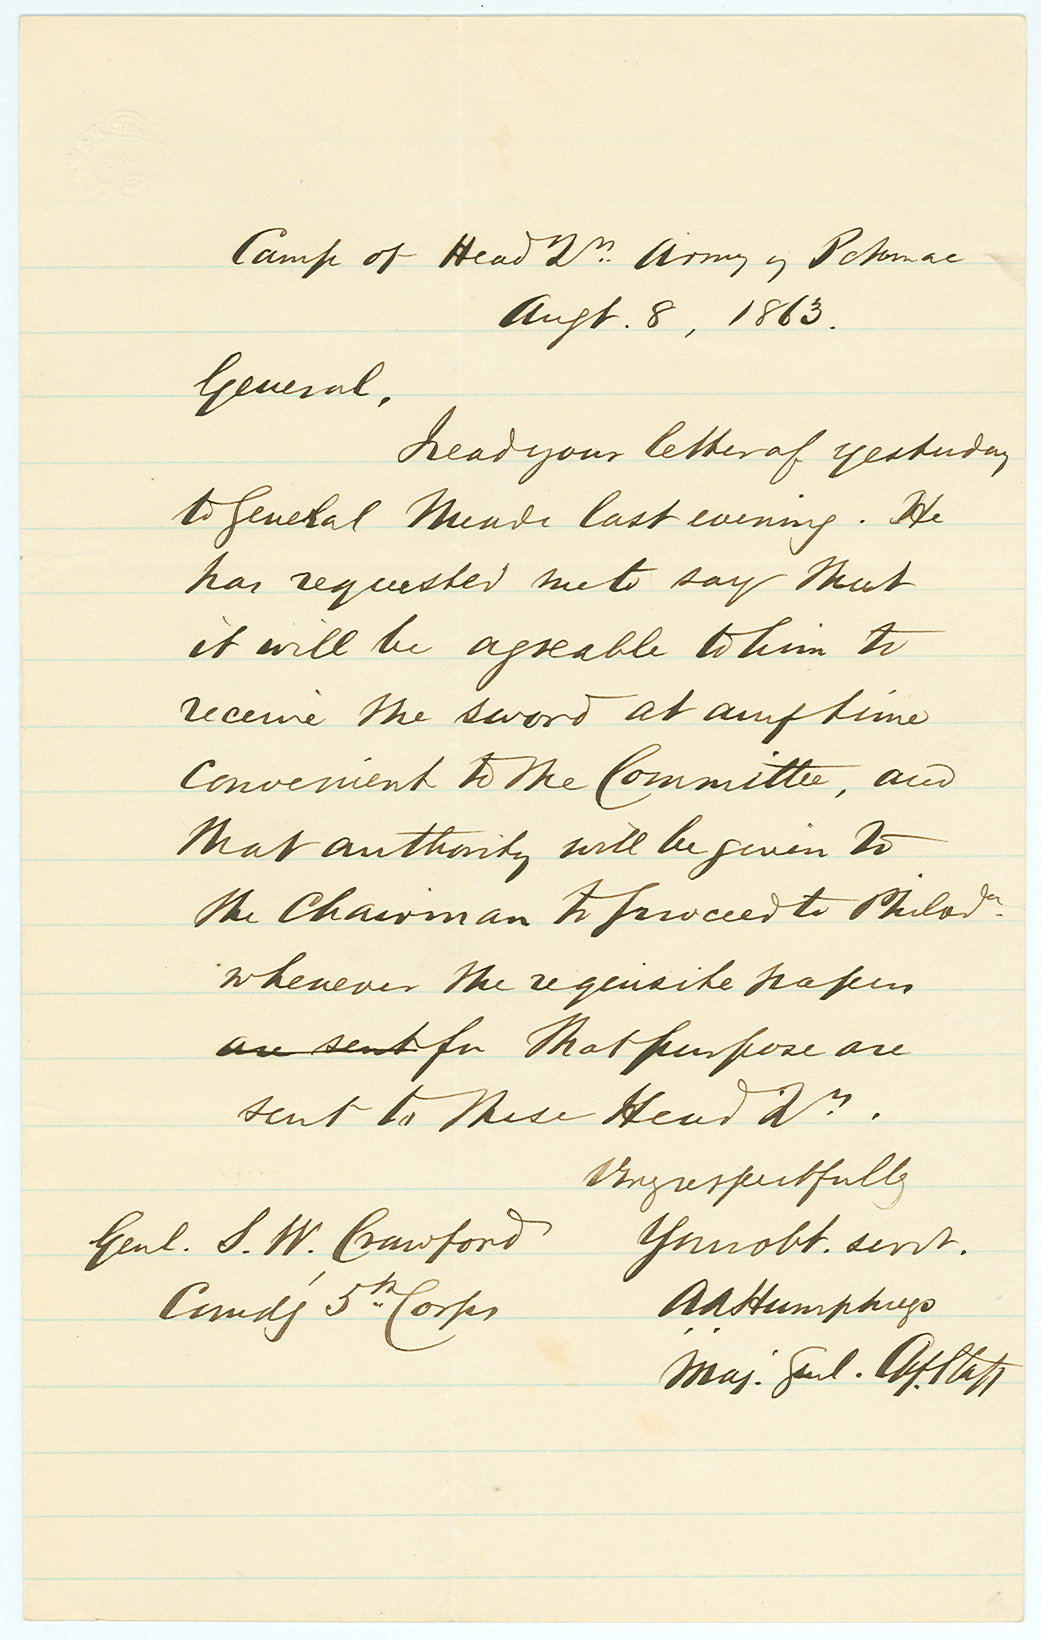 Camp of Head Qrs. Army of Potomac
Augt. 8, 1863.
General,
I read your letter of yesterday
to General Meade last evening. He
has requested me to say that
it will be agreable to him to
receive the sword at any time
convenient to the Committee, and
that authority will be given to
the Chairman to proceed to Philada.
whenever the requisite papers
are sent for that purpose are
sent to these Head Qrs.
Very respectfully
Genl. S. W. Crawford Your obt. servt.
Comdg 5th Corps AAHumphreys
Maj. Genl. Ch. Staff